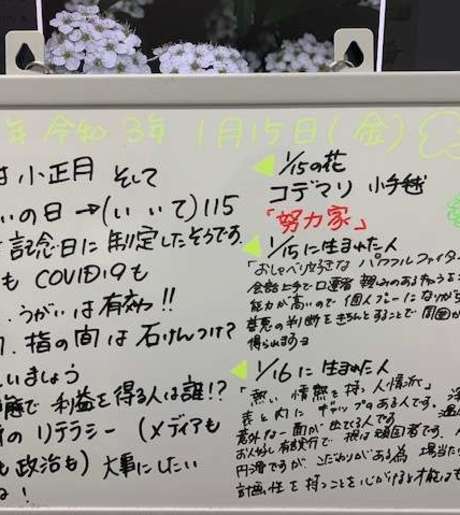 年 令和3年 1月15日(金)
は 小正月 そして
いの日→(いいて)115
記念日に制定したそうです
も COVID19も
うがいは有効!!
指の間は石けんつけ?
いましょう
で利益を得る人は誰!?
のリテラシー(メディアも
も政治も)大事にしたい
ね!
1/15の花
コデマリ 小手毬
「努力家」
1/15に生まれた人
「おしゃべり好きなパワフルファイター
会話上手で口達者 親しみのあるキャラを
能力が高いので個人プレーになりがち
意見の判断をきちんとすることで周囲か
得られますョ
1/16に生まれた人
「熱い情熱を持つ人情派」
表と内にギャップのある人です。
意外な一面が出てくる人です
お人好し有言実行で 根は頑固者です。
円滑ですが、こだわりがある為 場当た
計画性を持つことを心がけると才能は